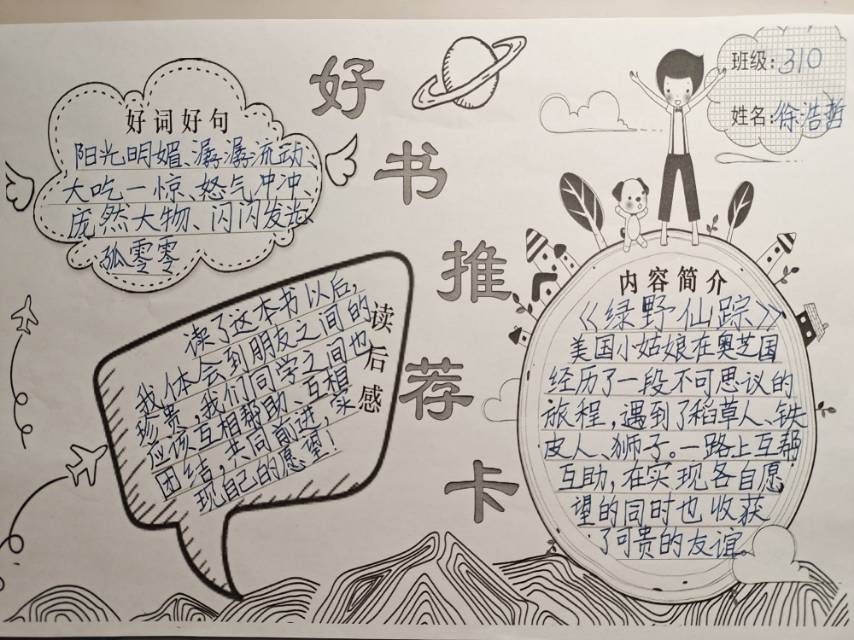 好书推荐卡
班级:310
姓名:徐浩哲
好词好句
阳光明媚、潺潺流动、
大吃一惊、怒气冲冲、
庞然大物、闪闪发光、
孤零零
读后感
读了这本书以后,
我体会到朋友之间的
珍贵,我们同学之间也
应该互相帮助、互相
团结,共同前进,实
现自己的愿望!
内容简介
《绿野仙踪》
美国小姑娘在奥芝国
经历了一段不可思议的
旅程,遇到了稻草人、铁
皮人、狮子。一路上互帮
互助,在实现各自愿
望的同时也收获
了可贵的友谊。